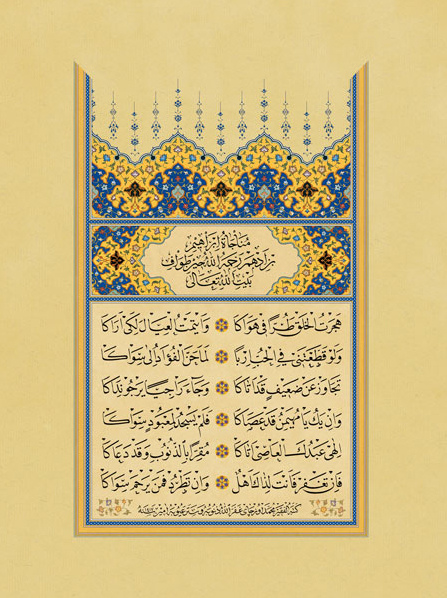 مناجاة ابراهيم
بن ادهم رحمه الله حين طوافه
بيت الله تعالى
هجرت الخلق طرا في هواكا وايتمت العيال لكي اراكا
ولو قطعتني في الحب اربا لما حن الفؤاد الى سواكا
تجاوز عن ضعيف قد اتاكا وجاء راجيا يرجو نداكا
وان يك يا مهيمن قد عصاكا فلم يسجد لمعبود سواكا
الهي عبدك العاصي اتاكا مقرا بالذنوب وقد دعاكا
فان تغفر فانت لذاك اهل وان تطرد فمن يرحم سواكا
كتبه الفقير محمد اوزجاي غفر الله ذنوبه وستر عيوبه